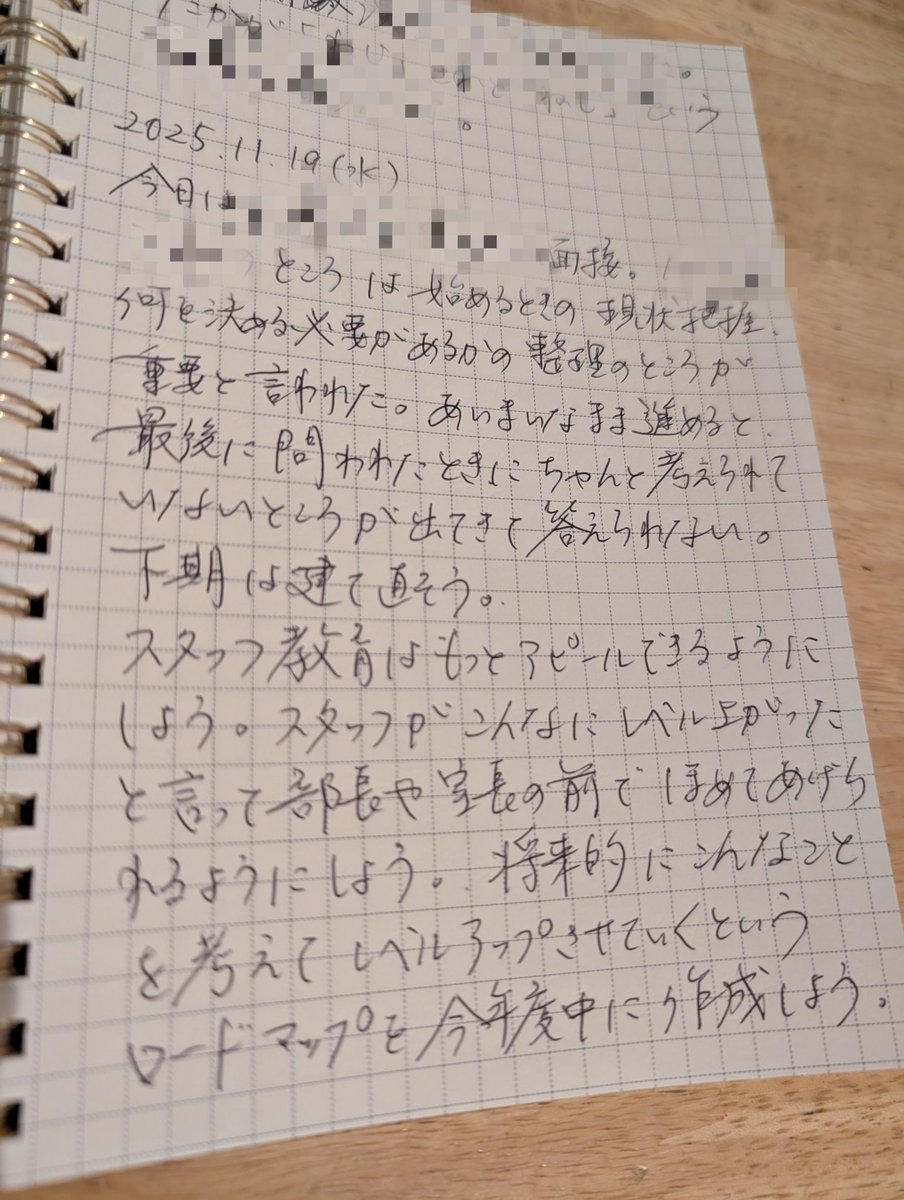 という
2025.11.19(水)
今日は
面接。
ところは始めるときの現状把握、
何を決める必要があるかの整理のところが
重要と言われた。あいまいなまま進めると、
最後に問われたときにちゃんと考えられて
いないところが出てきて答えられない。
下期は建て直そう。
スタッフ教育はもっとアピールできるように
しよう。スタッフがこんなにレベル上がった
と言って部長や室長の前でほめてあげら
れるようにしよう。将来的にこんなこと
を考えてレベルアップさせていくという
ロードマップを今年度中に作成しよう。